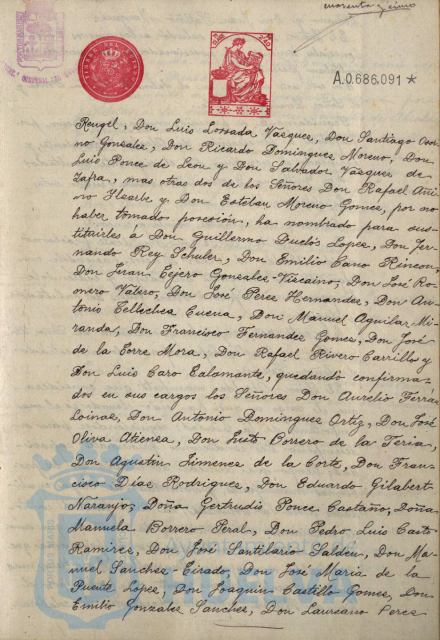 cuarenta y cinco
A.0.686.091 *
Rengel, Don Luis Lossada Vásquez, Don Santiago Oso-
no Gonzalez, Don Ricardo Dominguez Moreno, Don
Luis Ponce de Leon y Don Salvador Vásquez de
Zafra, mas otras dos de los Señores Don Rafael
y Don Esteban Moreno Gomez, por no
haber tomado posesión, ha nombrado para sus-
tituirles á Don Guillermo Duclós Lopez, Don Fer-
nando Rey Schuler, Don Emilio Cano Rincon,
Don Juan Tejero Gonzalez-Vizcaino, Don José Ro-
mero Valero, Don José Perez Hernandez, Don An-
tonio Tellechea Cuena, Don Manuel Aguilar Mi-
randa, Don Francisco Fernandez Gomez, Don José
de la Torre Mora, Don Rafael Rivero Carrillo y
Don Luis Caro Calamonte, quedando confirma-
dos en sus cargos los Señores Don Aurelio
Don Antonio Dominguez Ortiz, Don José
Oliva Atienza, Don Justo Borrero de la Feria,
Don Agustin Jimenez de la Corte, Don Fran-
cisco Díaz Rodriguez, Don Eduardo Gilabert
Naranjo, Doña Gertrudis Ponce Castaño, Doña
Manuela Borrero Peral, Don Pedro Luis Casto
Ramirez, Don José Santilario Saldeu, Don Ma-
nuel Sanchez-Tirado, Don José Maria de la
Puente Lopez, Don Joaquin Castillo Gomez, Don
Emilio Gonzalez Sanchez, Don Laureano Perez